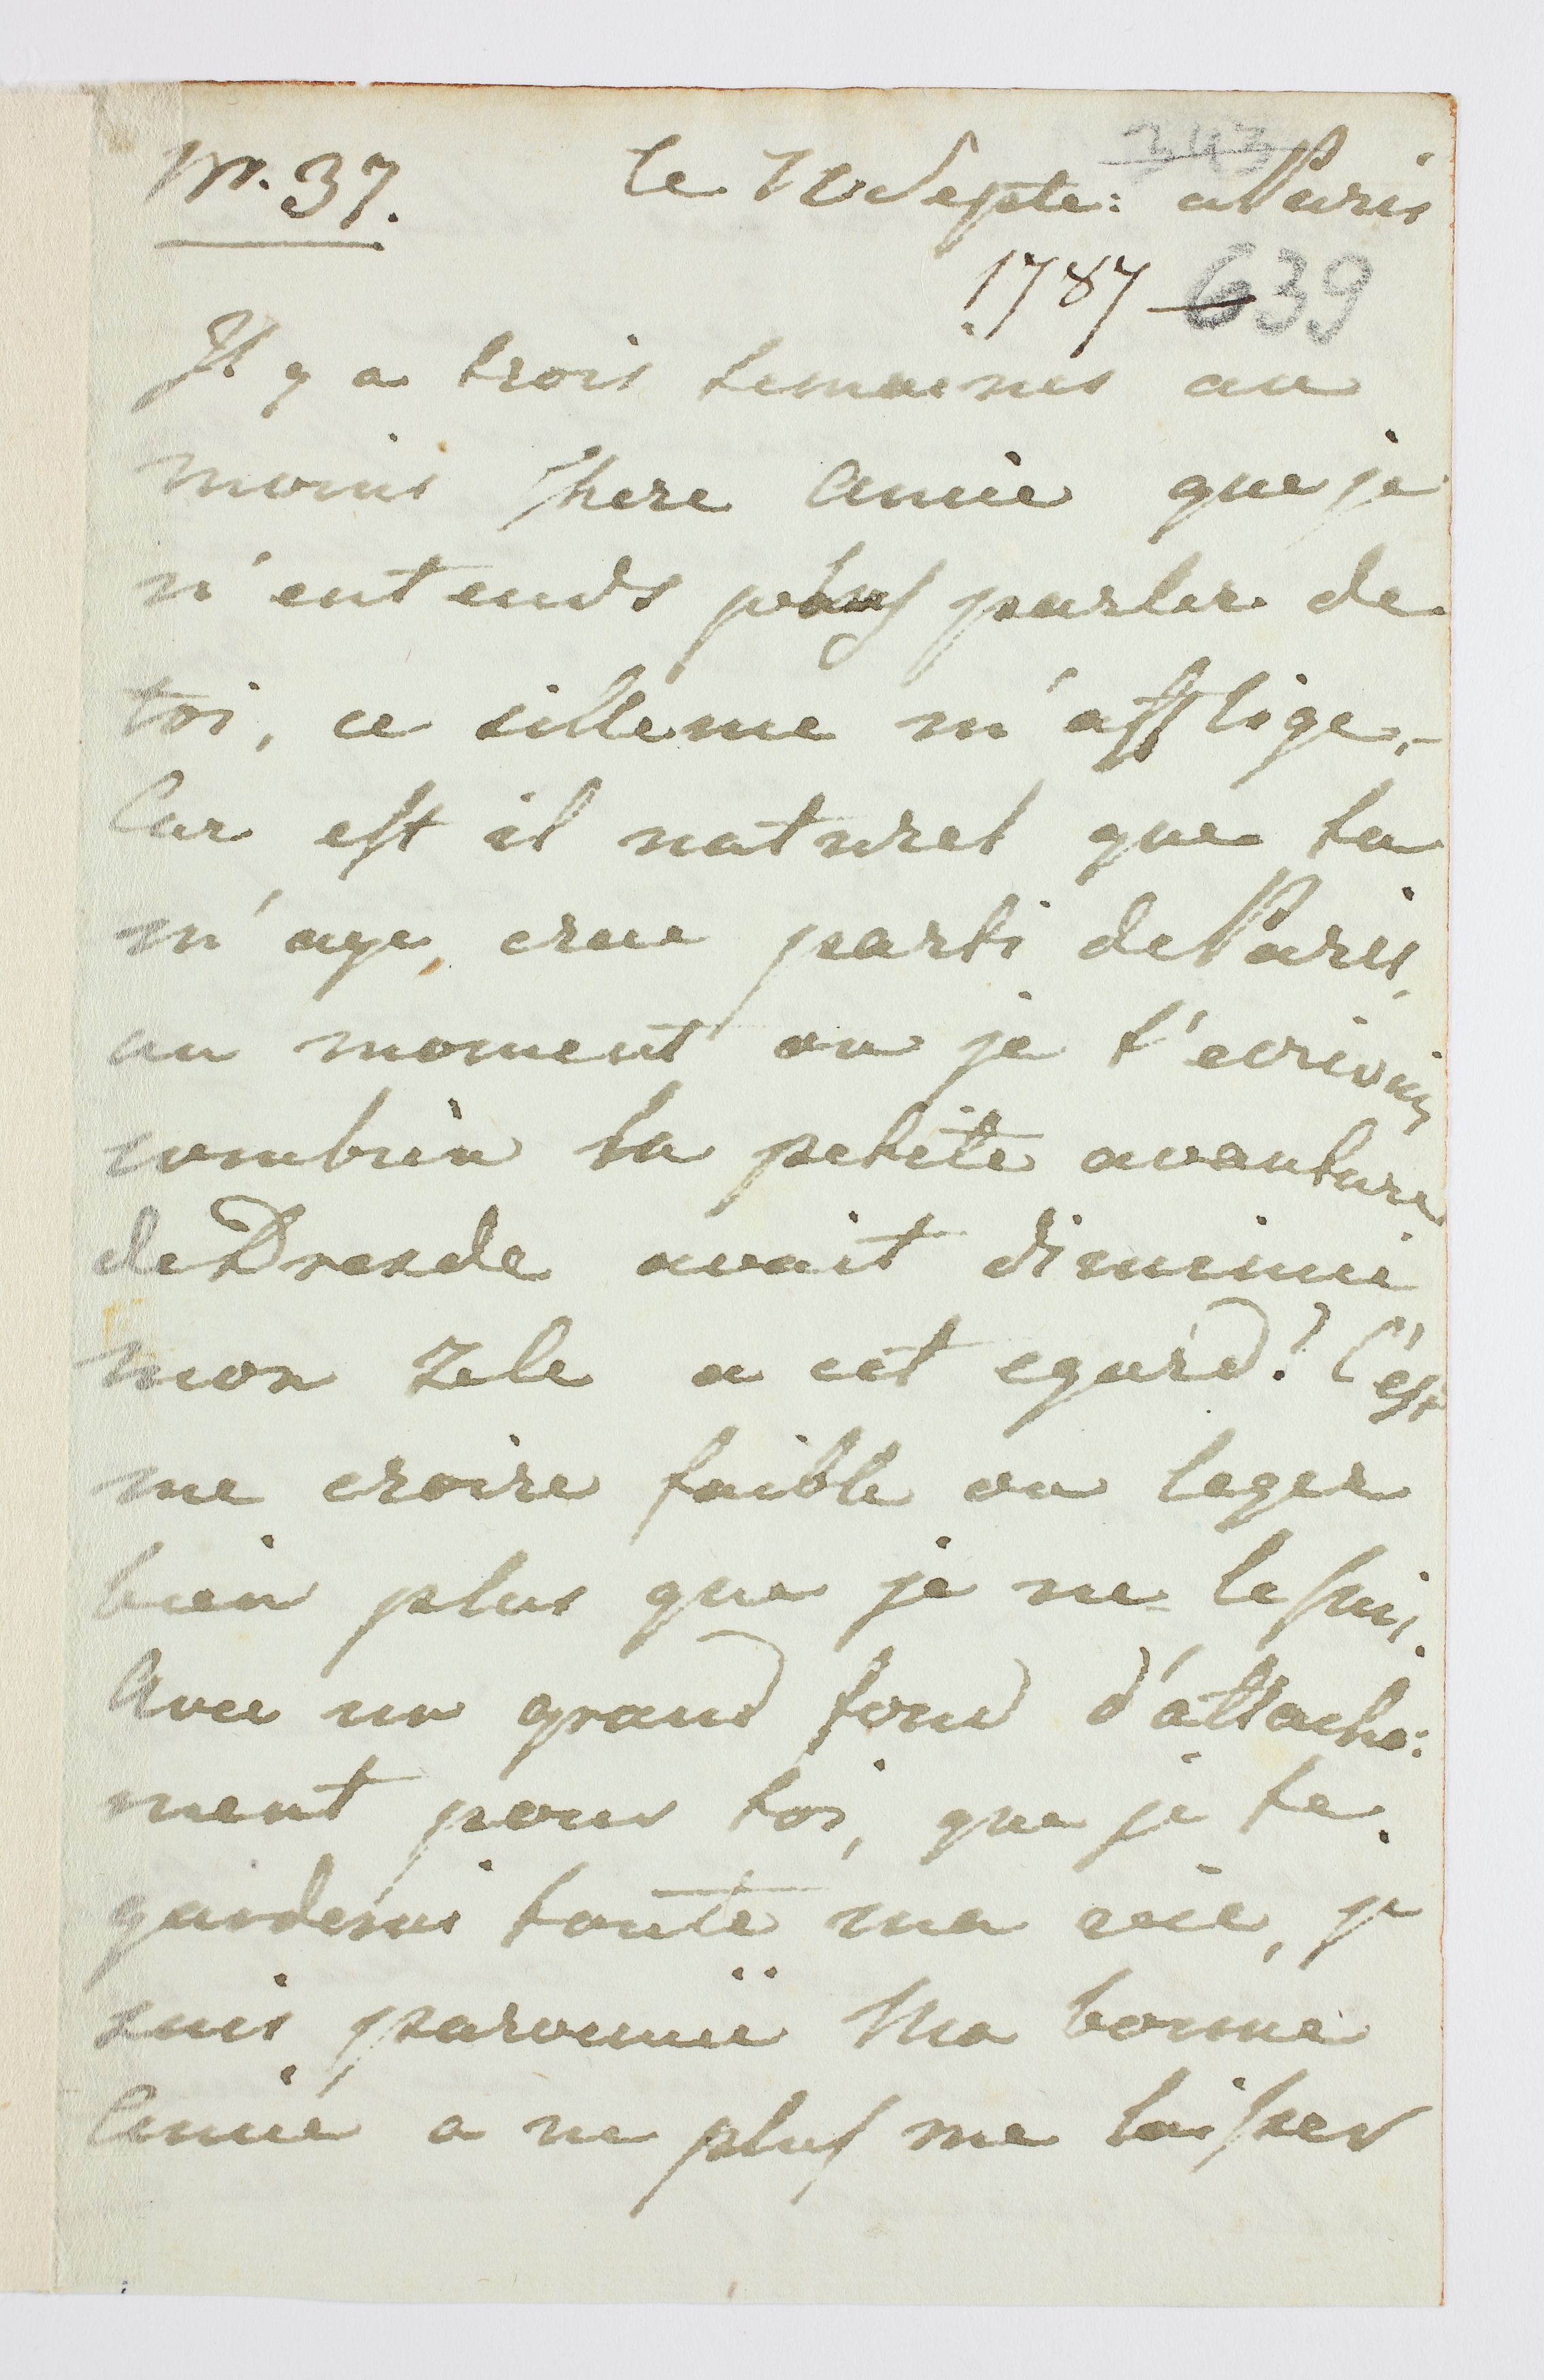 No. 37. le 10 Septe: a Paris
343
1787 639
Il y a trois semaines au
moins chere Amie que je
n'entends plus parler de
toi, ce sillense m'afflige,-
Car est il naturel que tu
m'aye, crue parti de Paris,
au moment ou je t'ecrivais
combien ta petite avanture
de Dresde avait diminué
mon zele a cet egard? C'est
me croire faible ou leger
bien plus que je ne le suis.
Avec un grand fond d'attache:
ment pour toi, que je te
garderai toute ma vie, je
suis parvenue Ma bonne
Amie a ne plus me laisser